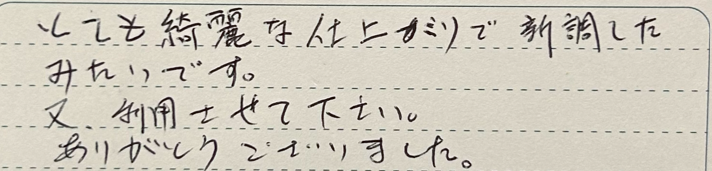 とても綺麗な仕上がりで新調した
みたいです。
又、利用させて下さい。
ありがとうございました。